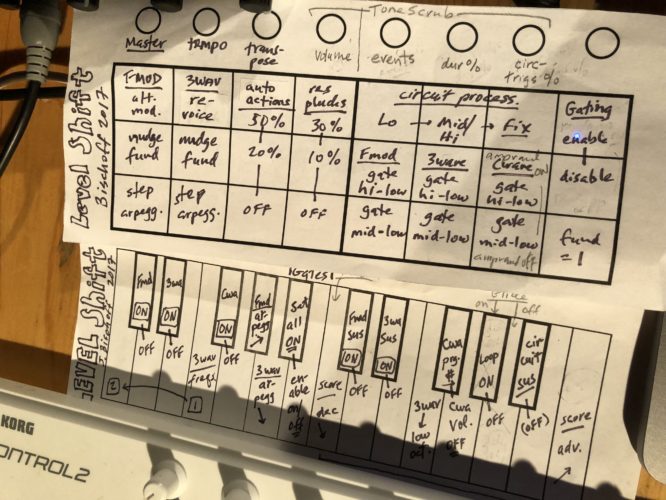 ToneScrub
Master tempo trans-pose volume events dur% circ-trigs%
Level Shift
Bischoff 2017
FMOD alt. mod.
3WAV re-voice
auto actions 50%
res plucks 30%
circuit process
Lo → Mid/Hi → Fix
Gating enable
nudge fund
nudge fund
20%
10%
Fmod gate hi-low
3wave gate hi-low
amprand ON
Cwave gate hi-low
disable
step arpegg.
step arpegg.
OFF
OFF
gate mid-low
gate mid-low
gate mid-low
amprand off
fund = 1
LEVEL Shift
J. Bischoff 2017
Fmd ON OFF
3wa ON OFF
3wav freqs
Cwa ON OFF
Fmd ar-pegg
3wav ar-pegg
Sut all ON
enable on/off
score dec
Fmd sus ON OFF
3wa sus ON OFF
3wav low oct.
Cwa prg. #
Cwa vol. OFF
on off
Loop ON OFF
circuit sus (OFF)
score adv.
2 1
KORG
ONTROL2